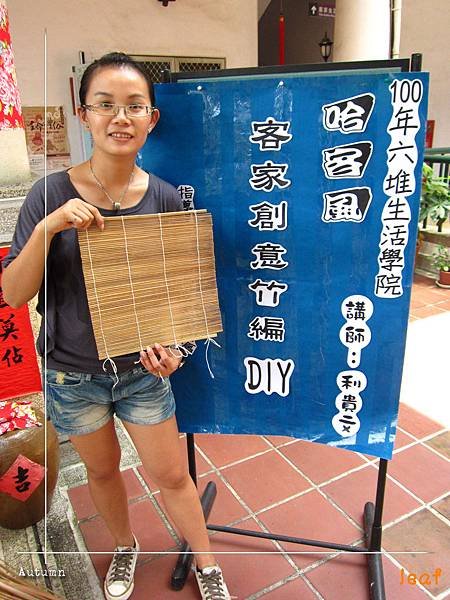 100年六堆生活學院
哈客風
客家創意竹編DIY
講師：利貴云
指
莫
佔
吉
Autumn
leaf